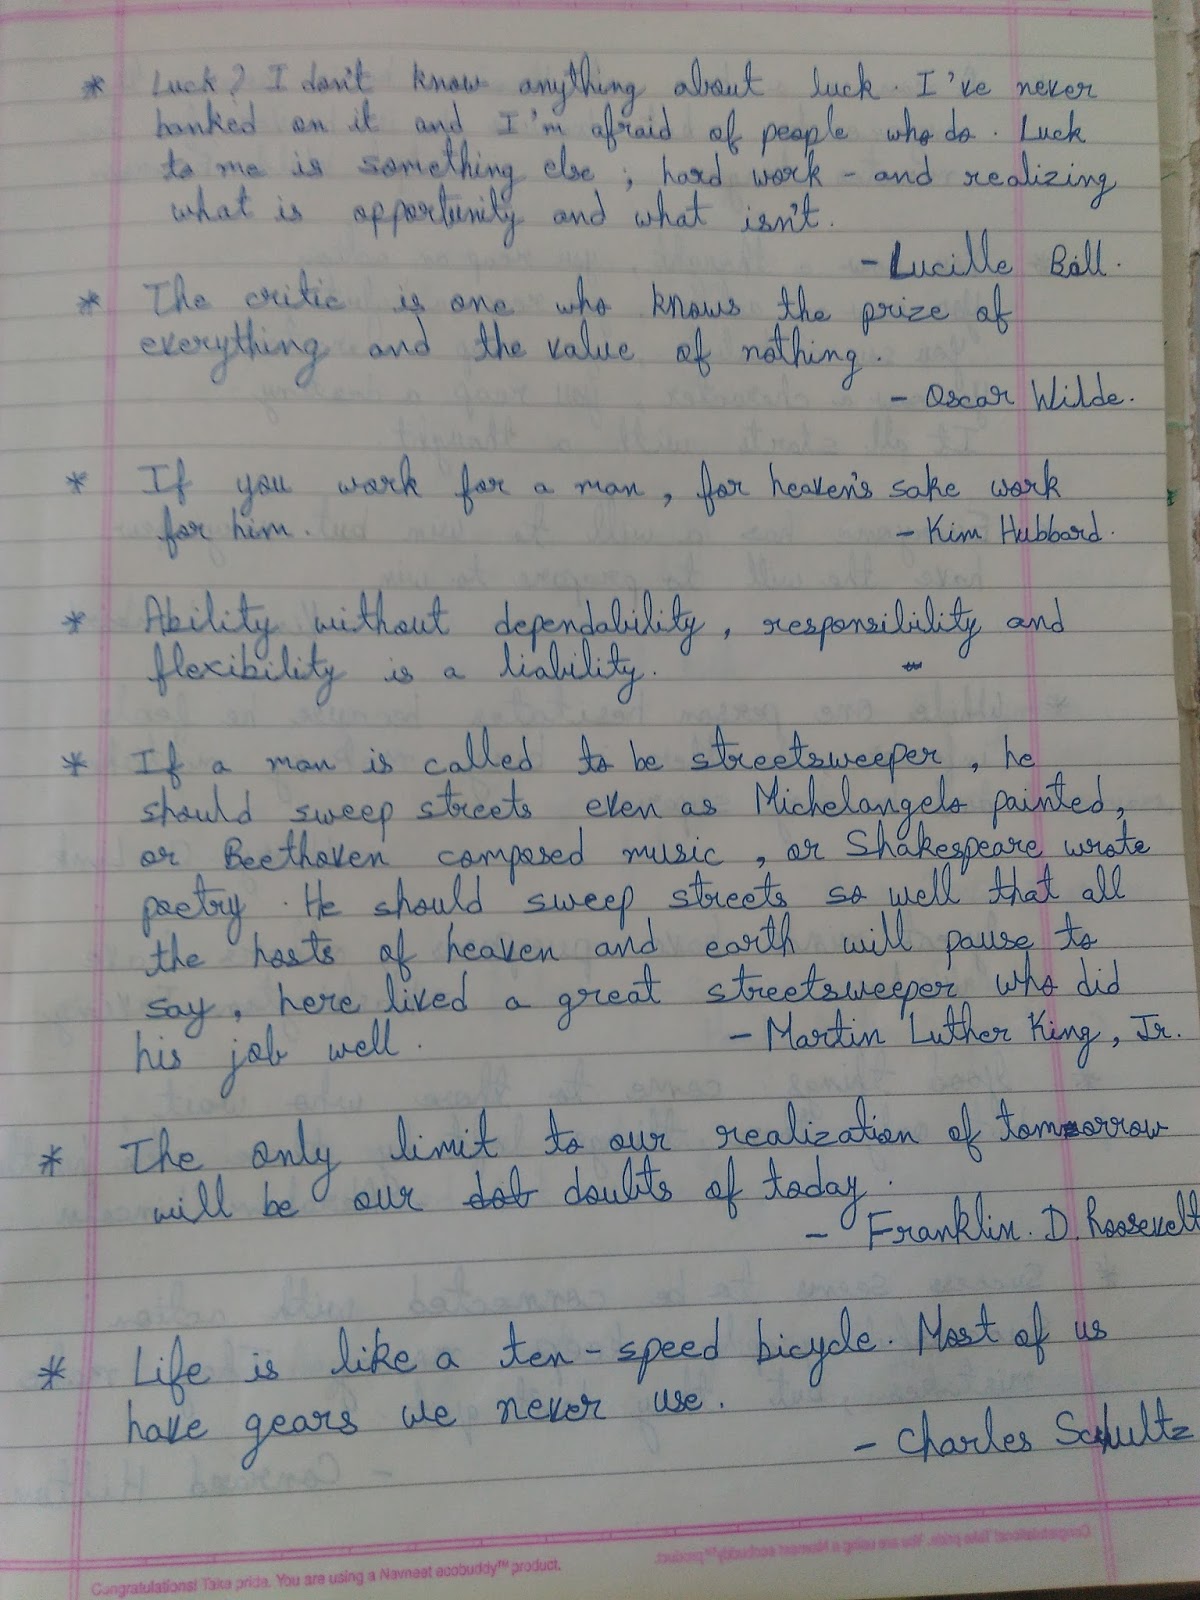 * Luck? I don't know anything about luck. I've never
banked on it and I'm afraid of people who do. Luck
to me is something else; hard work - and realizing
what is opportunity and what isn't.
- Lucille Ball.
* The critic is one who knows the prize of
everything and the value of nothing.
- Oscar Wilde.
* If you work for a man, for heaven's sake work
for him. - Kim Hubbard.
* Ability without dependability, responsibility and
flexibility is a liability.
* If a man is called to be streetsweeper, he
should sweep streets even as Michelangelo painted,
or Beethoven composed music, or Shakespeare wrote
poetry. He should sweep streets so well that all
the hosts of heaven and earth will pause to
say, here lived a great streetsweeper who did
his job well. - Martin Luther King, Jr.
* The only limit to our realization of tomorrow
will be our dob doubts of today.
- Franklin. D. Roosevelt
* Life is like a ten-speed bicycle. Most of us
have gears we never use.
- Charles Schultz
Congratulations! Take pride. You are using a Navneet ecobuddy™ product.